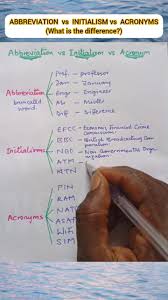 ABBREVIATION vs INITIALISM vs ACRONYMS
(What is the difference?)
Abbreviation vs Initialism vs Acronym
Abbreviation
truncated
word.
Prof. - professor
Jan - January
Engr - Engineer
Mr - Mister
Dif - Difference
Initialisms
EFCC - Economic Financial Crime
Commission
BBC - British Broadcasting Cor
poration
NGO - Non Governmental Orga
nization
ATM -
MTN
Acronyms
PIN
RAM
ASAP
Wifi
SIM